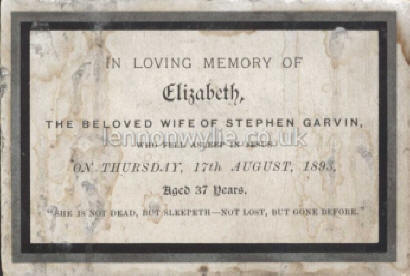 IN LOVING MEMORY OF
Elizabeth,
THE BELOVED WIFE OF STEPHEN GARVIN,
lennonwylie.co.uk
WHO FELL ASLEEP IN JESUS
ON THURSDAY, 17th AUGUST, 1893,
Aged 37 Years.
"SHE IS NOT DEAD, BUT SLEEPETH—NOT LOST, BUT GONE BEFORE."